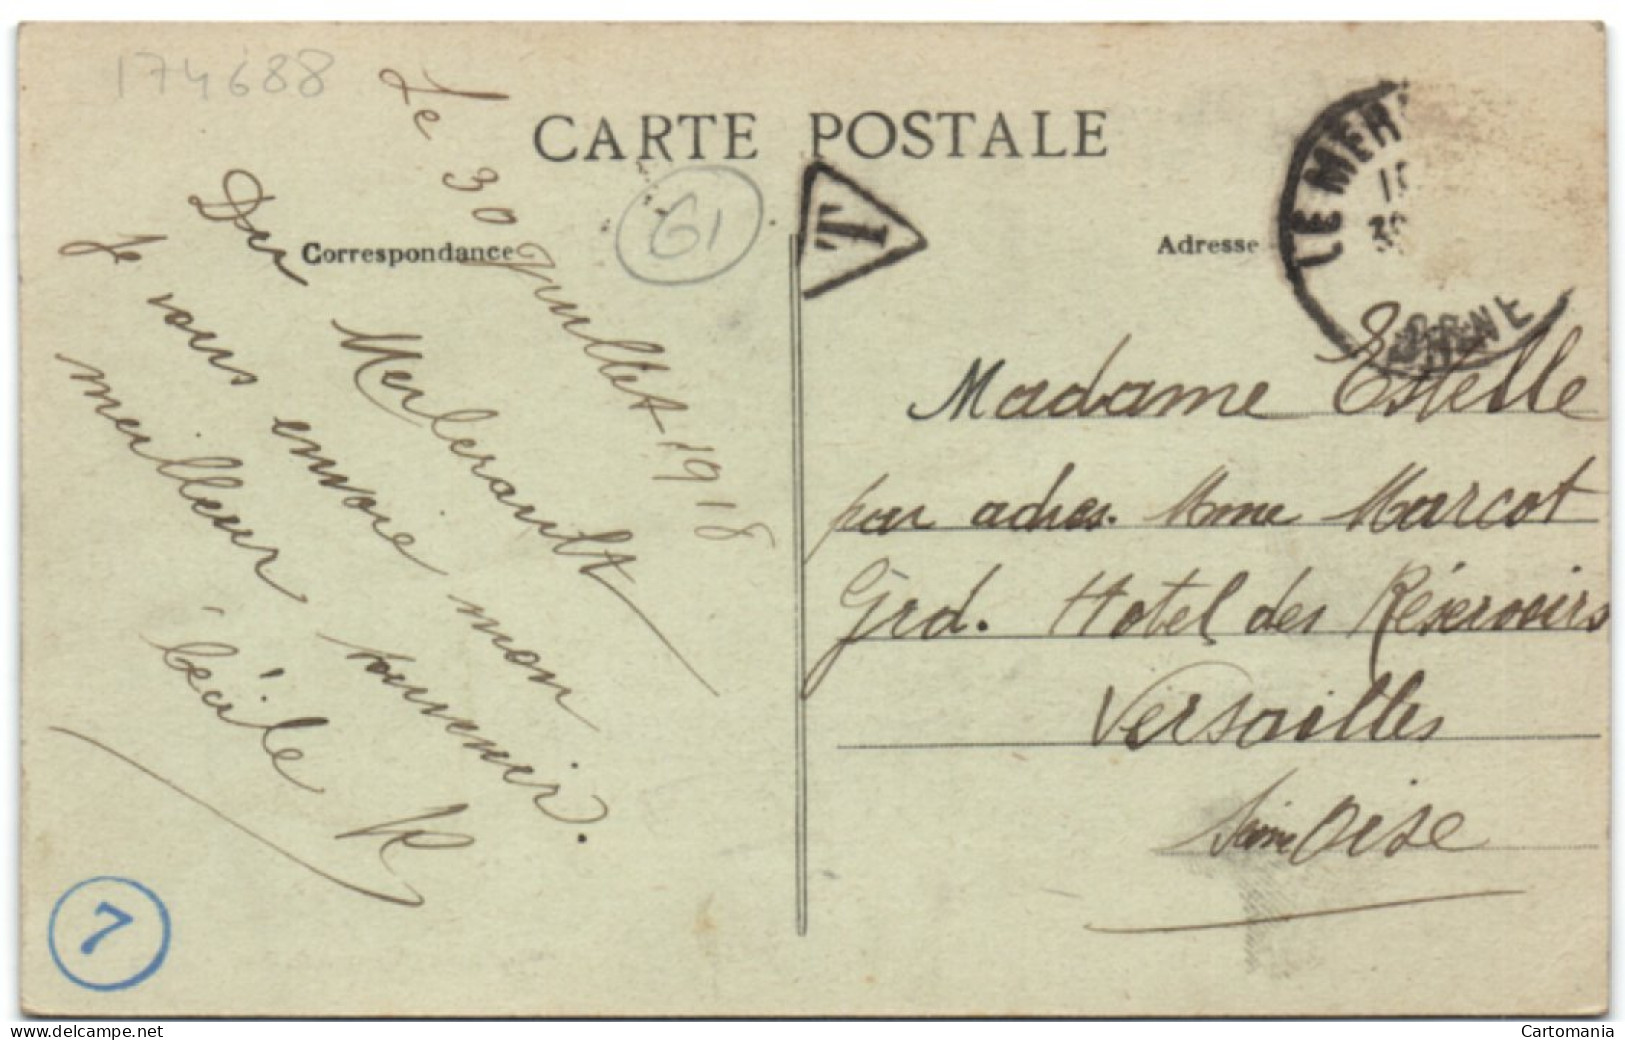 174688
CARTE POSTALE
Correspondance
Adresse
61
T
LE MER
ORNE
Le 30 Juillet 1918
Du Merlerault
Je vous envoie mon
meilleur souvenir.
Cécile R
7
Madame Estelle
par adres. Mme Marcot
Grd. Hotel des Réservoirs
Versailles
Seine Oise
www.delcampe.net
Cartomania